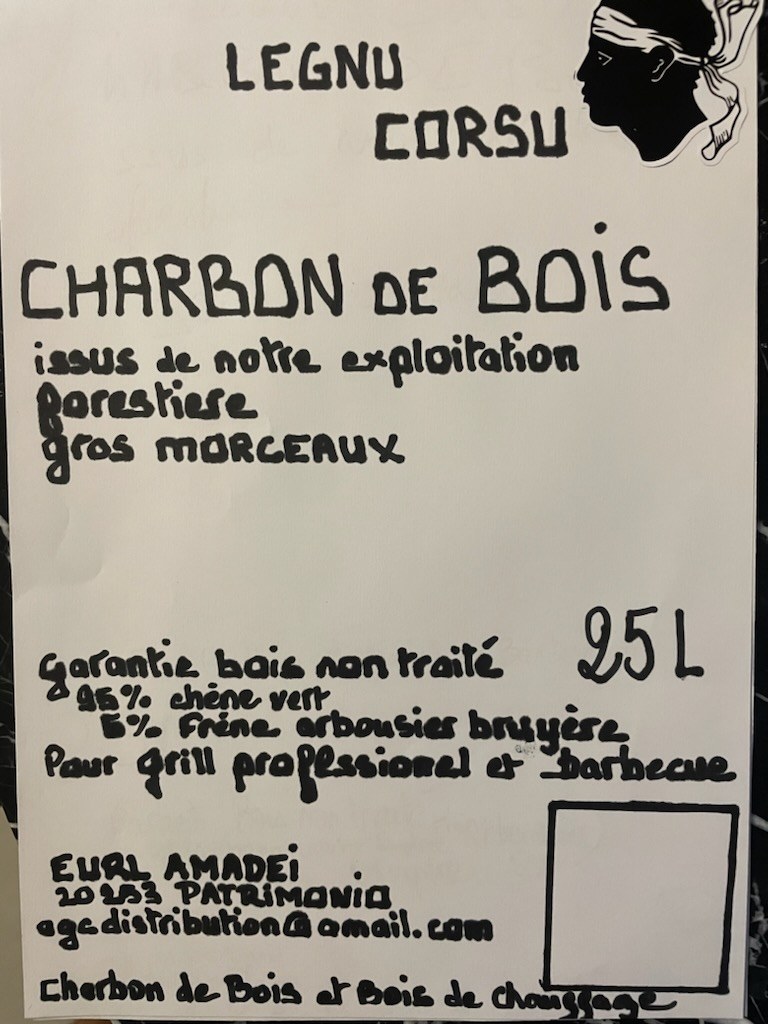 LEGNU
CORSU
CHARBON DE BOIS
issus de notre exploitation
forestiere
gros MORCEAUX
25L
Garantie bois non traité
95% chêne vert
5% Frêne arbousier bruyère
Pour grill professionel et barbecue
EURL AMADEi
20253 PATRIMONIO
agcdistribution@gmail.com
Charbon de Bois et Bois de chauffage